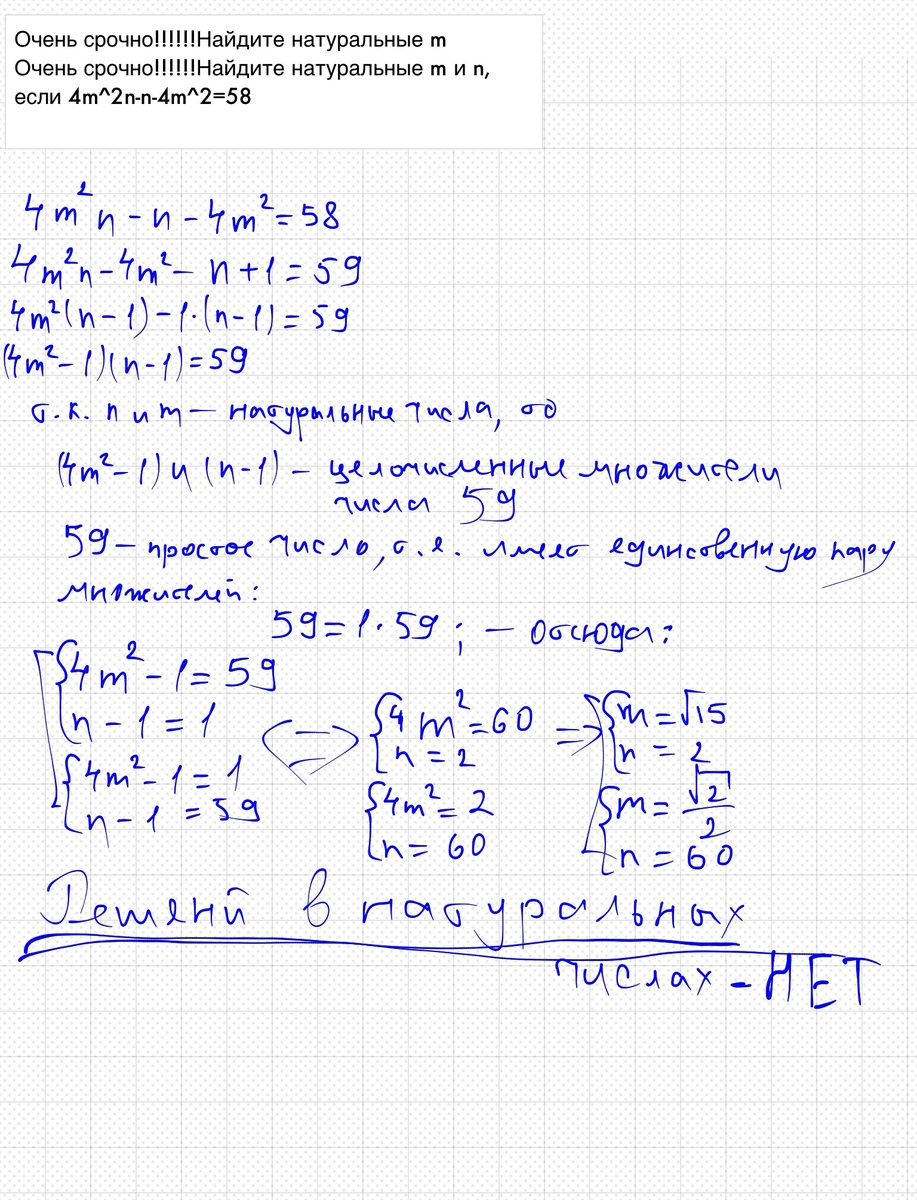 Очень срочно!!!!!!Найдите натуральные m
Очень срочно!!!!!!Найдите натуральные m и n,
если 4m^2n-n-4m^2=58
4m²n - n - 4m² = 58
4m²n - 4m² - n + 1 = 59
4m²(n - 1) - 1·(n - 1) = 59
(4m² - 1)(n - 1) = 59
т.к. n и m — натуральные числа, то
(4m² - 1) и (n - 1) — целочисленные множители
числа 59
59 — простое число, т.е. имеет единственную пару
множителей:
59 = 1·59 ; — отсюда:
[ { 4m² - 1 = 59
n - 1 = 1
{ 4m² - 1 = 1
n - 1 = 59
<=>
{ 4m² = 60
n = 2
{ 4m² = 2
n = 60
=>
[ { m = √15
n = 2
{ m = √2/2
n = 60
Решений в натуральных
числах - НЕТ